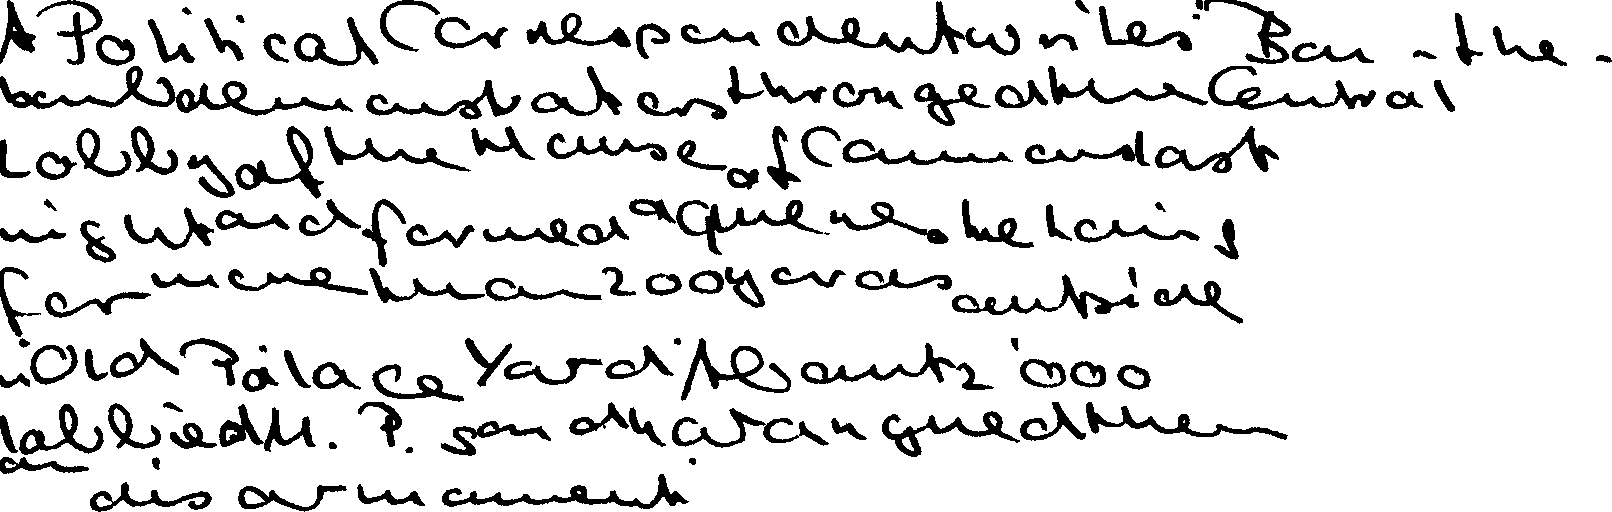 A Political Correspondent writes: "Ban-the-
bomb demonstrators thronged the Central
Lobby of the House of Commons last
night and formed a queue stretching
for more than 200 yards outside
in Old Palace Yard. About 2,000
lobbied M. P.s and harangued them
on disarmament.